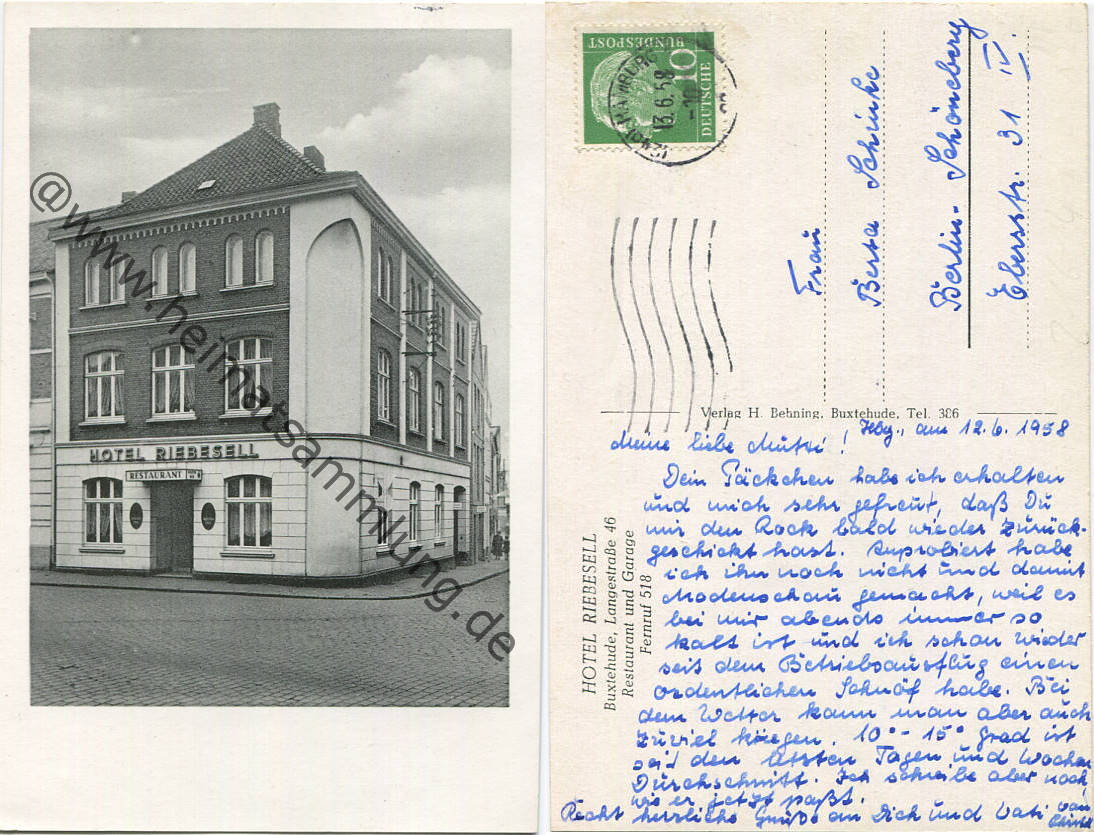 HOTEL RIEBESELL
RESTAURANT
@www.heimatsammlung.de
DEUTSCHE
BUNDESPOST
10
HAMBURG
13.6.58
Frau
Berta Schinke
Berlin-Schöneberg
Ebersstr. 31 IV.
Verlag H. Behning, Buxtehude, Tel. 386
HOTEL RIEBESELL
Buxtehude, Langestraße 46
Restaurant und Garage
Fernruf 518
Hbg., am 12.6.1958
Meine liebe Mutti!
Dein Päckchen habe ich erhalten
und mich sehr gefreut, daß Du
mir den Rock bald wieder zurück-
geschickt hast. Anprobiert habe
ich ihn noch nicht und damit
Modenschau gemacht, weil es
bei mir abends immer so
kalt ist und ich schon wieder
seit dem Betriebsausflug einen
ordentlichen Schnöf habe. Bei
dem Wetter kann man aber auch
zuviel kriegen. 10° - 15° Grad ist
seit den letzten Tagen und Wochen
Durchschnitt. Ich schreibe aber noch
wie er jetzt paßt.
Recht herzliche Grüße an Dich und Vati von